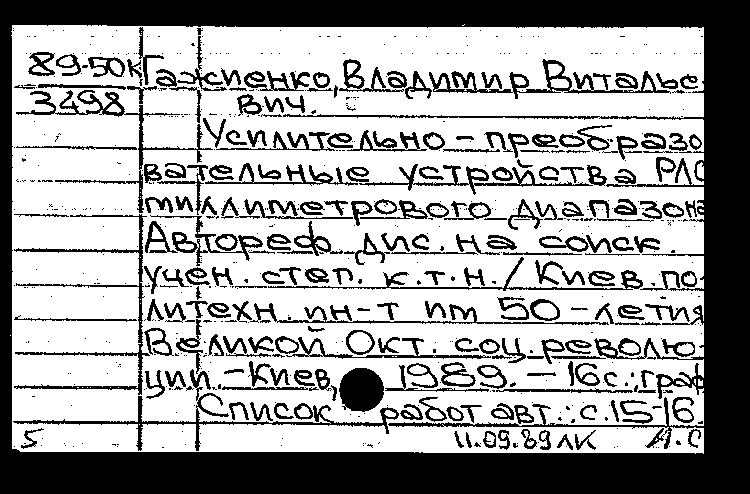 89-50к Гажиенко, Владимир Виталье-
3498 вич.
Усилительно-преобразо
вательные устройства РЛС
миллиметрового диапазона
Автореф. дис. на соиск.
учен. степ. к.т.н. / Киев. по-
литехн. ин-т им 50-летия
Великой Окт. соц. револю-
ции. - Киев, 1989. - 16с.: граф
Список работ авт.: с.15-16.
5 11.09.89 ЛК А.С